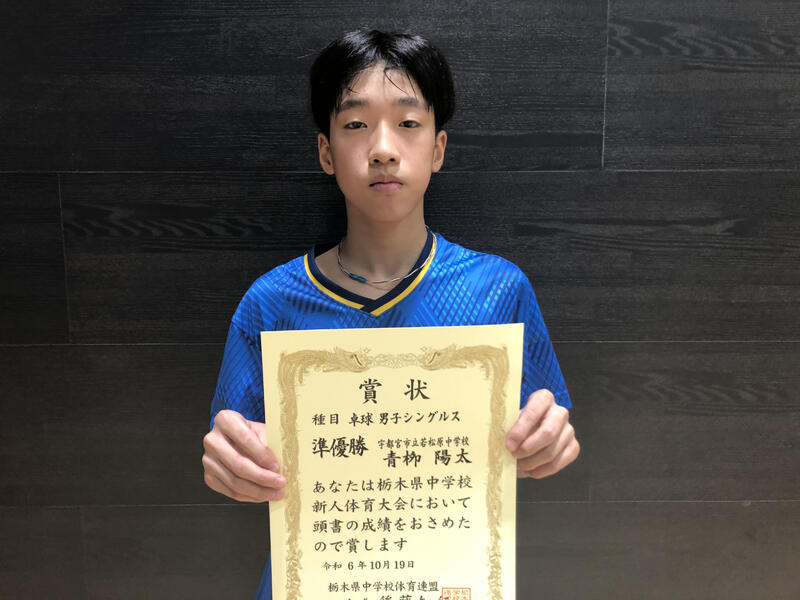 賞状
種目 卓球 男子シングルス
準優勝 宇都宮市立若松原中学校
青栁 陽太
あなたは栃木県中学校
新人体育大会において
頭書の成績をおさめた
ので賞します
令和 6 年 10 月 19 日
栃木県中学校体育連盟